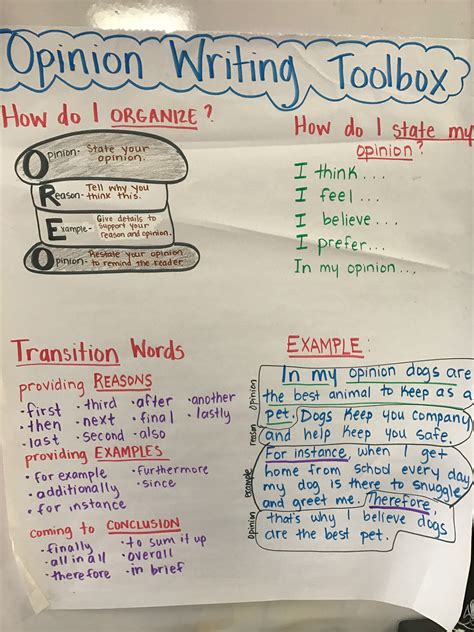 Opinion Writing Toolbox
How do I ORGANIZE?
Opinion- State your
opinion.
Reason- Tell why you
think this.
Example- Give details to
support your
reason and opinion.
Opinion- Restate your opinion
to remind the reader
How do I state my
opinion?
I think...
I feel...
I believe...
I prefer...
In my opinion...
Transition Words
providing REASONS
·first ·third ·after ·another
·then ·next ·final ·lastly
·last ·second ·also
providing EXAMPLES
·for example ·furthermore
·additionally ·since
·for instance
coming to CONCLUSION
·finally ·to sum it up
·all in all ·overall
·therefore ·in brief
EXAMPLE:
opinion
reason
example
opinion
In my opinion dogs are
the best animal to keep as a
pet. Dogs keep you company
and help keep you safe.
For instance, when I get
home from school every day
my dog is there to snuggle
and greet me. Therefore,
that's why I believe dogs
are the best pet.